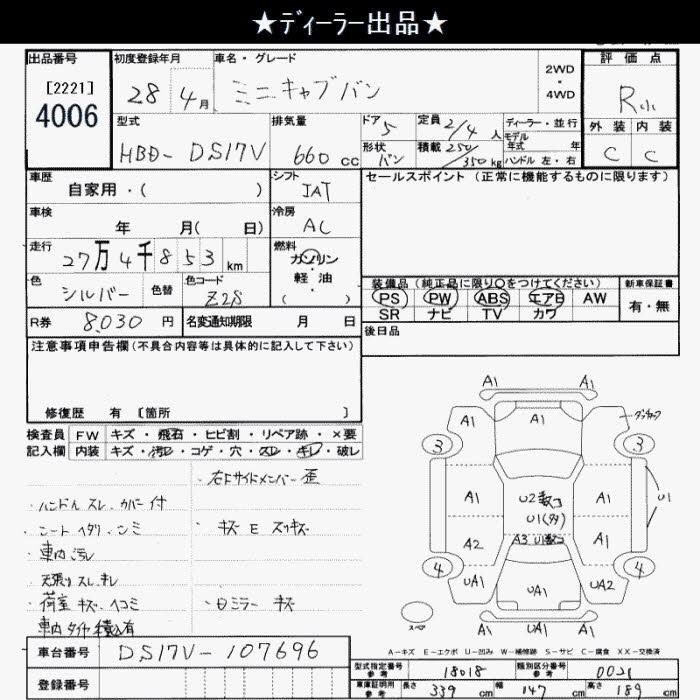 ★ディーラー出品★
出品番号 初度登録年月 車名・グレード 2WD・4WD 評価点
[2221] 28 4月 ミニキャブバン R小
4006
型式 排気量 ドア 5 定員 2/4人 ディーラー・並行 外装 内装
モデル年式 年
HBD-DS17V 660cc 形状 バン 積載 250/350kg ハンドル 左・右 C C
車歴 シフト セールスポイント (正常に機能するものに限ります)
自家用・( ) IAT
車検 冷房
年 月( 日) AC
走行 燃料
27万4千853km ガソリン・軽油
( )
色 色替 色コード 装備品 (純正品に限り○をつけてください) 新車保証書
シルバー Z2S PS PW ABS エアB AW 有・無
SR ナビ TV カワ
R券 8,030円 名変通知期限 月 日 後日品
注意事項申告欄(不具合内容等は具体的に記入して下さい)
修復歴 有 [箇所 ]
検査員 FW キズ・飛石・ヒビ割・リペア跡・×要
記入欄 内装 キズ・汚レ・コゲ・穴・スレ・キレ・破レ
・右Fサイドメンバー歪
・ハンドルスレ、カバー付
・シートヘタリ、シミ ・キズ E スリキズ
・車内汚レ
・天張りスレ、キレ
・荷室キズ・ヘコミ ・Dミラーキズ
車内タイヤ積込有
車台番号 DS17V-107696
登録番号
A1 A1
A1 A1 A1
3 3
A1 U2数コ A1 U1
U1(多)
A2 A3 U1数コ A1
4 4
UA1 UA1 UA2
スペア
A1 UA1 A1
A-キズ E-エクボ U-凹み W-補修跡 S-サビ C-腐食 XX-交換済
型式指定番号 参考 18018 類別区分番号 参考 0021
車庫証明用 参考 長さ 339cm 幅 147cm 高さ 189cm